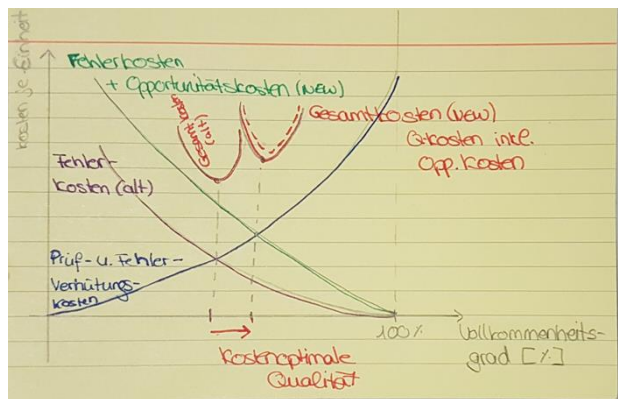 Kosten je Einheit
Fehlerkosten
+ Opportunitätskosten (NEW)
Gesamtkosten
(alt)
Gesamtkosten (NEW)
Q-Kosten inkl.
Opp. Kosten
Fehler-
kosten (alt)
Prüf- u. Fehler-
Verhütungs-
kosten
100%
Vollkommenheits-
grad [%]
Kostenoptimale
Qualität